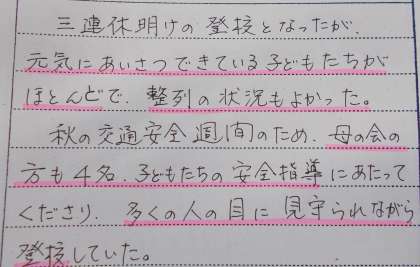 三連休明けの登校となったが、
元気にあいさつできている子どもたちが
ほとんどで、整列の状況もよかった。
秋の交通安全週間のため、母の会の
方も4名、子どもたちの安全指導にあたって
くださり、多くの人の目に見守られながら
登校していた。